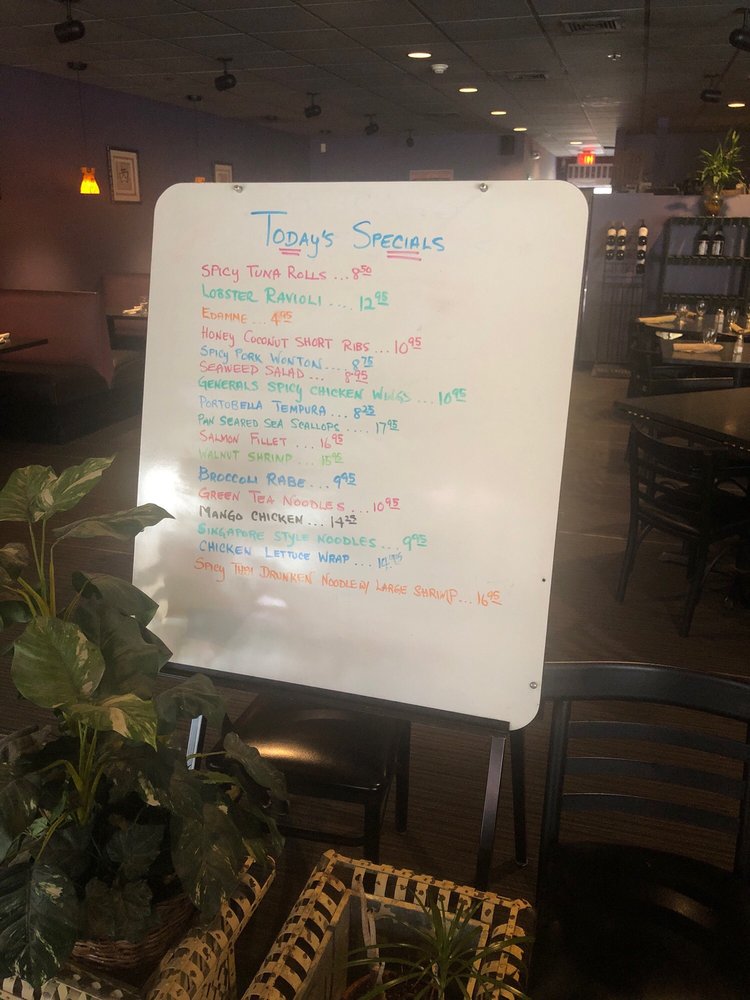 Today's Specials
Spicy Tuna Rolls ... 8.50
Lobster Ravioli .... 12.95
Edamme ... 4.95
Honey Coconut Short Ribs ... 10.95
Spicy Pork Wonton ... 8.75
Seaweed Salad ... 8.95
Generals Spicy Chicken Wings ... 10.95
Portobella Tempura ... 8.25
Pan Seared Sea Scallops ... 17.95
Salmon Fillet ... 16.95
Walnut Shrimp ... 15.95
Broccoli Rabe ... 9.95
Green Tea Noodles ... 10.95
Mango Chicken ... 14.25
Singapore Style Noodles ... 9.95
Chicken Lettuce Wrap ... 14.95
Spicy Thai Drunken Noodle w/ Large Shrimp ... 16.95
EXIT